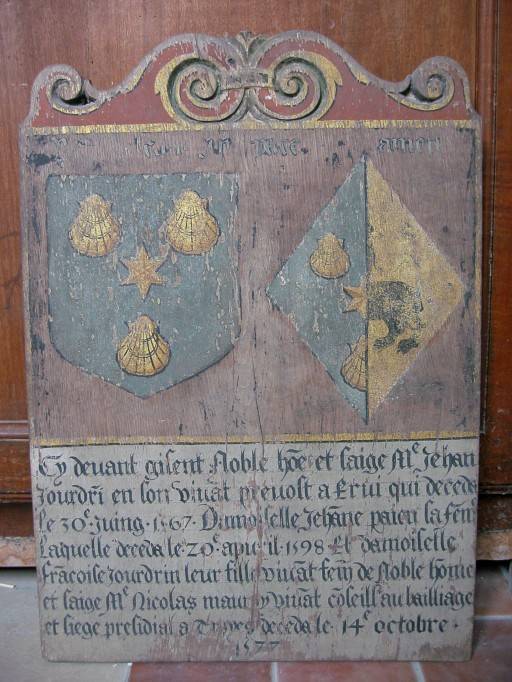 amen
Cy devant gisent Noble hõe et saige Me Jehan
Jourdri en son vivãt prevost a Ervi qui deceda
le 30e juing 1567. Dmoiselle Jehãne paieu sa fem
Laquelle deceda le 20e apvril 1598 Et damoiselle
frãcoise Jourdrin leur fille vivãt fem de Noble hõme
et saige Me Nicolas mau y vivãt cõseill au bailliage
et siege presidial a Troyes deceda le 14e octobre
1577